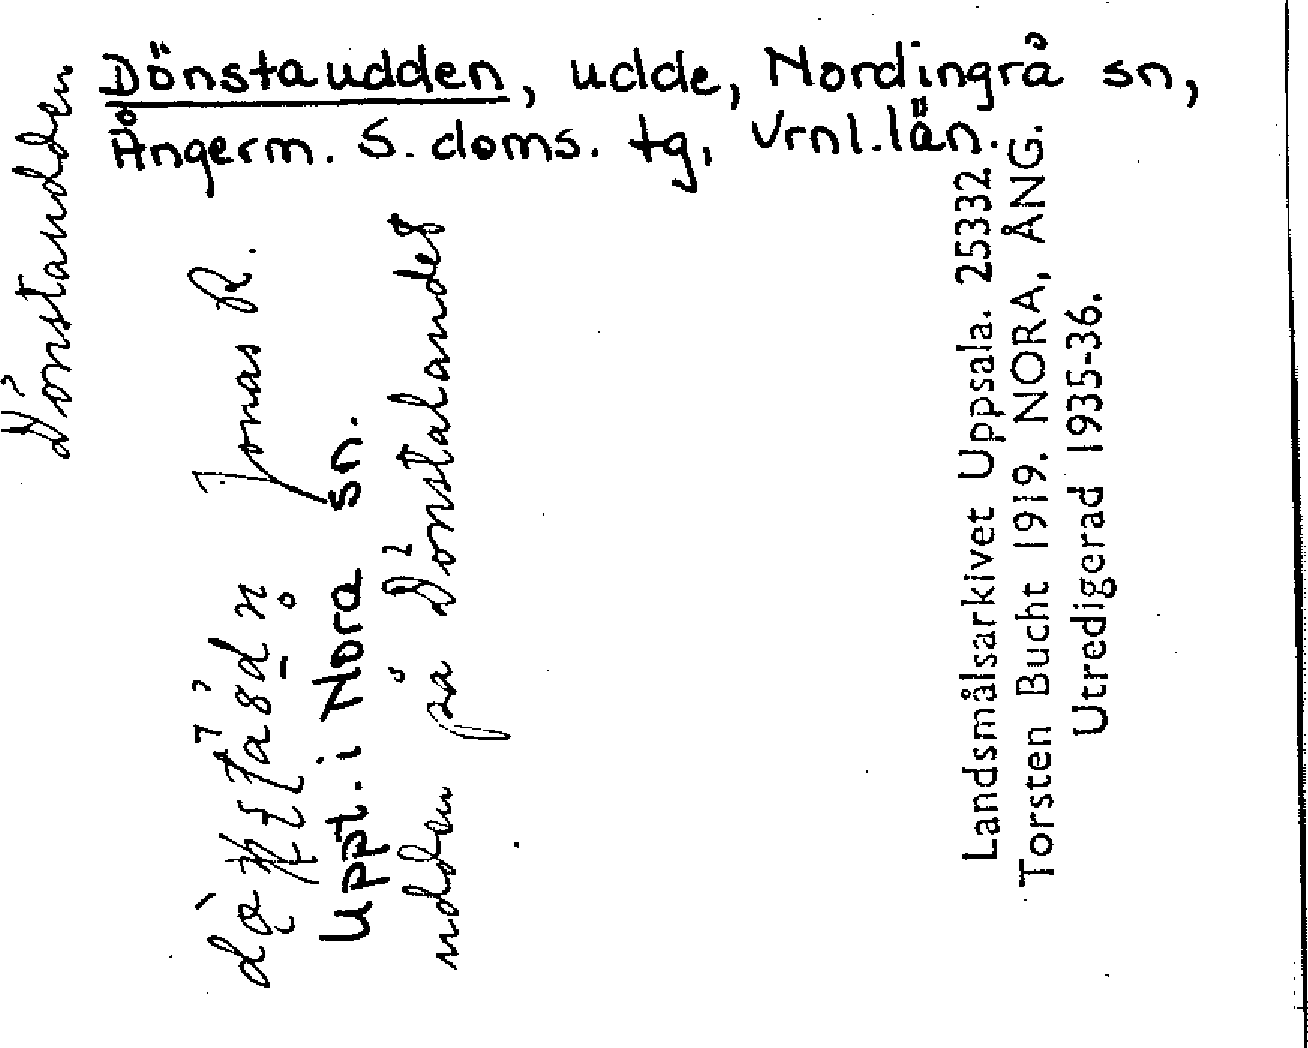 Dönstaudden, udde, Nordingrå sn,
Ångerm. S. doms. tg, Vrnl. län.
Dönstaudden
Jonas R.
Uppt. i Nora sn.
udden på Dönstalandet
Landsmålsarkivet Uppsala. 25332
Torsten Bucht 1919. NORA, ÅNG.
Utredigerad 1935-36.